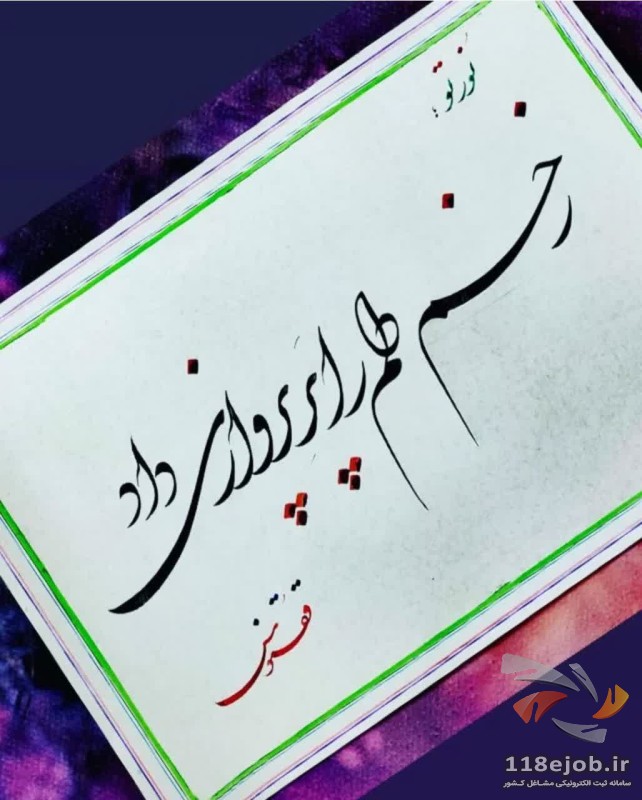 نور تو؛
زخم را پَر پروازی داد
118ejob.ir
سامانه ثبت الکترونیکی مشاغل کشور